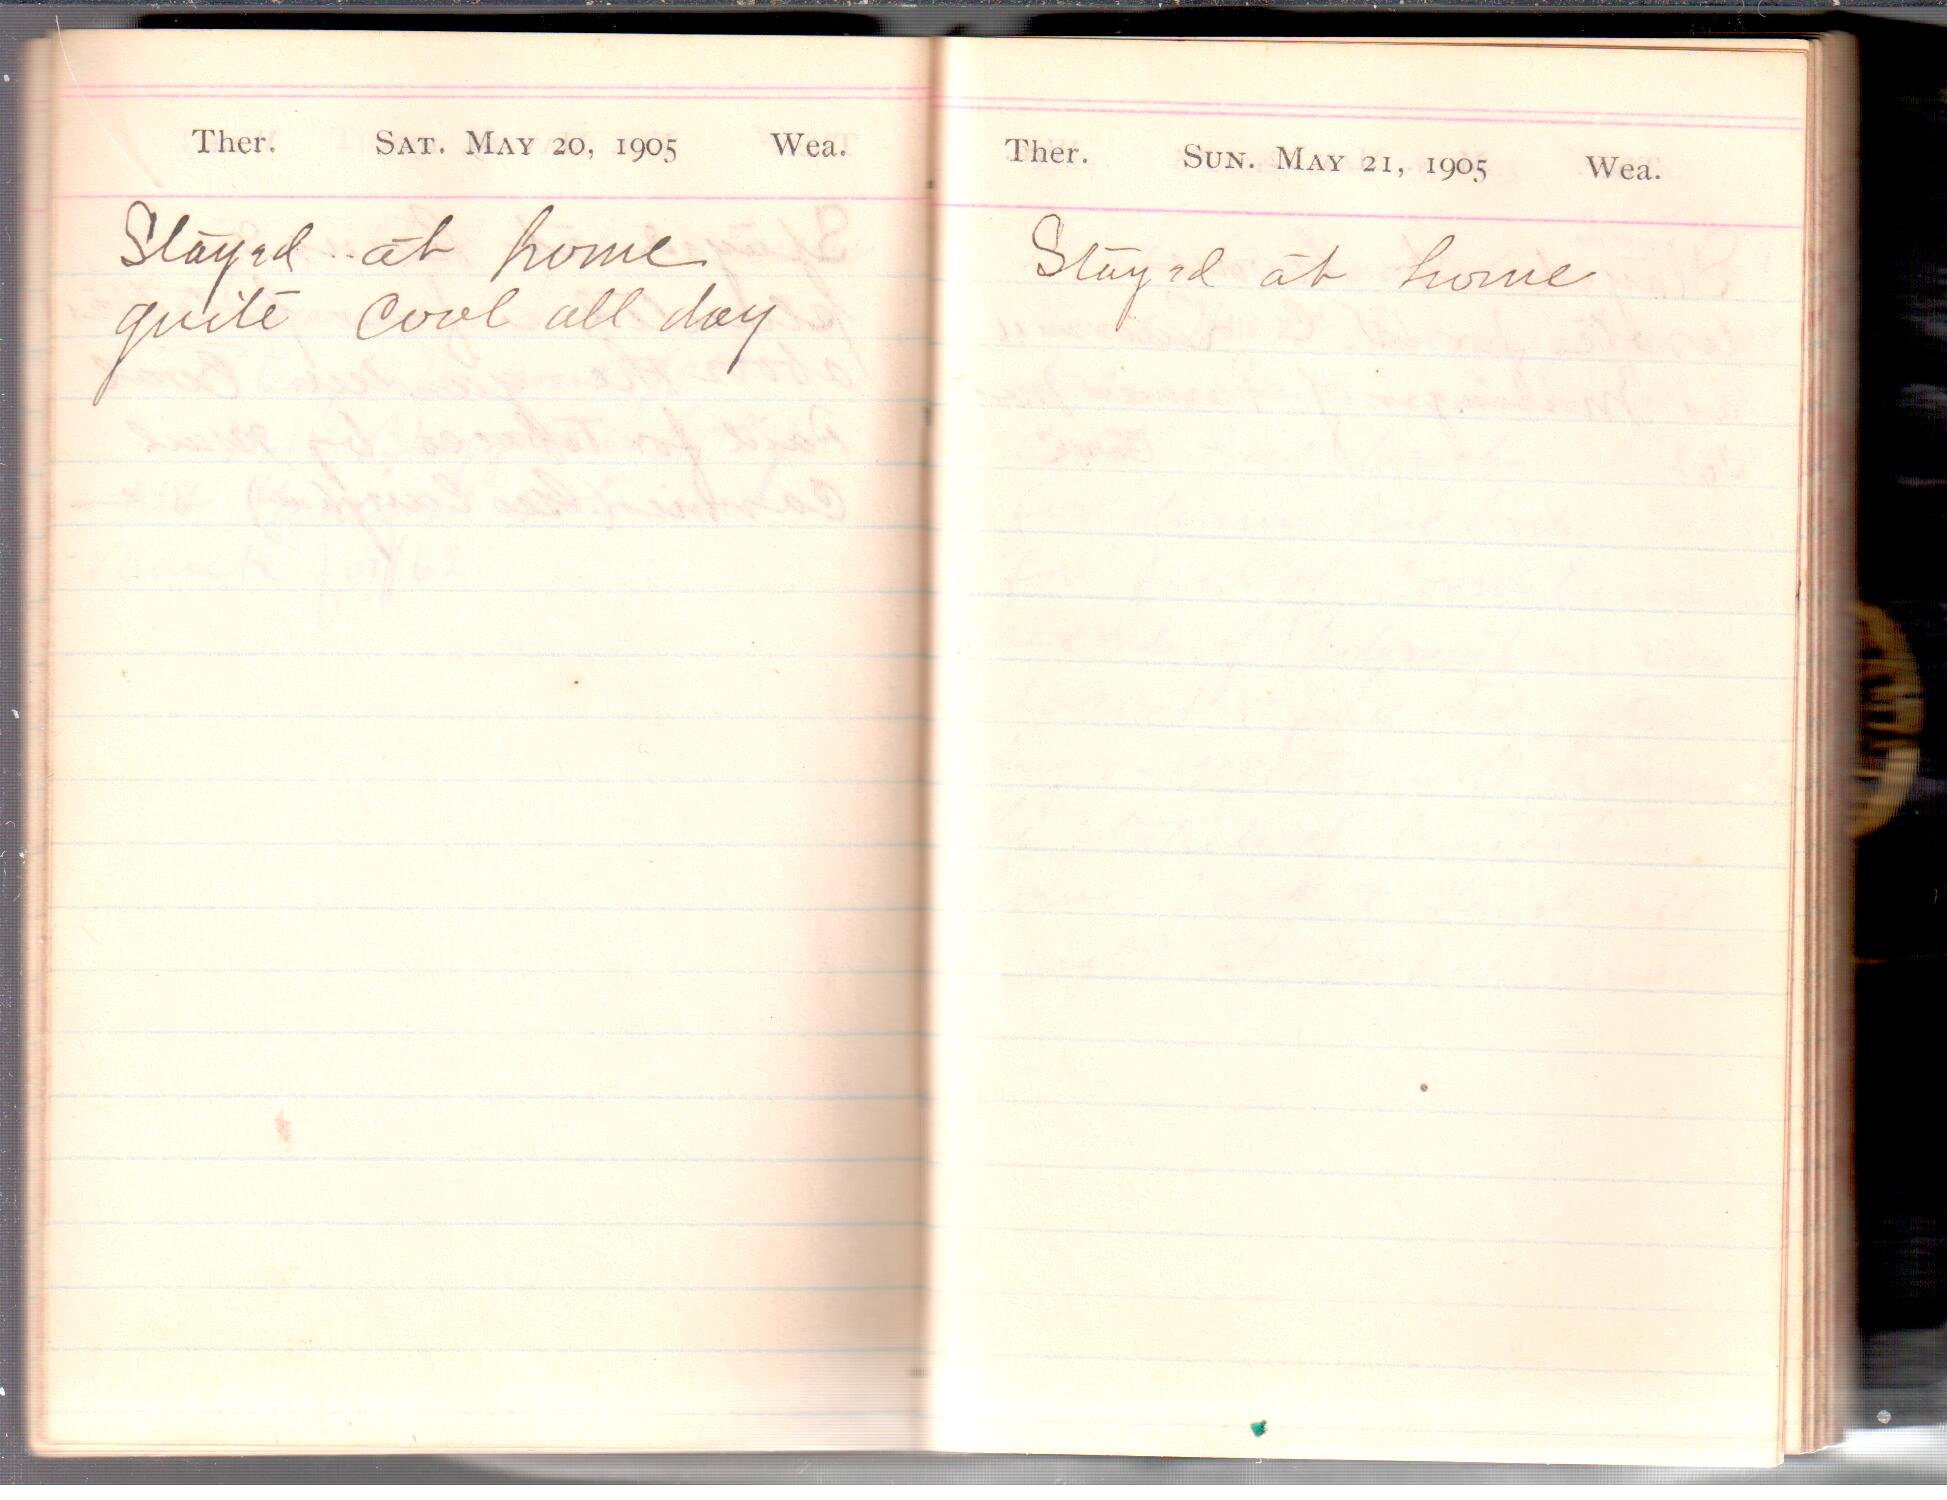 Ther. SAT. MAY 20, 1905 Wea.
Stayed at home
quite cool all day
Ther. SUN. MAY 21, 1905 Wea.
Stayed at home